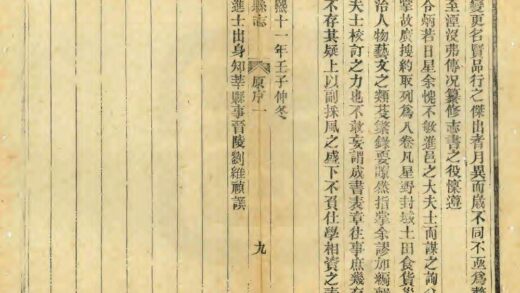 變更名賢品行之傑出者月異而歲不同不亟爲整
至湮沒弗傳況纂修志書之役懍遵
今炳若日星余愧不敏進邑之大夫士而謀之詢
掌故廣搜約取列爲八卷凡星野封域土田食貨
治人物藝文之類芟繁錄要瞭然指掌余謬加
夫士校訂之力也不敢妄謂成書表章往事庶幾存
不存其疑上以副採風之盛下不負仕學相資之
熙十一年壬子仲冬
縣志 原序一 九
進士出身知莘縣事晉陵劉維禎譔